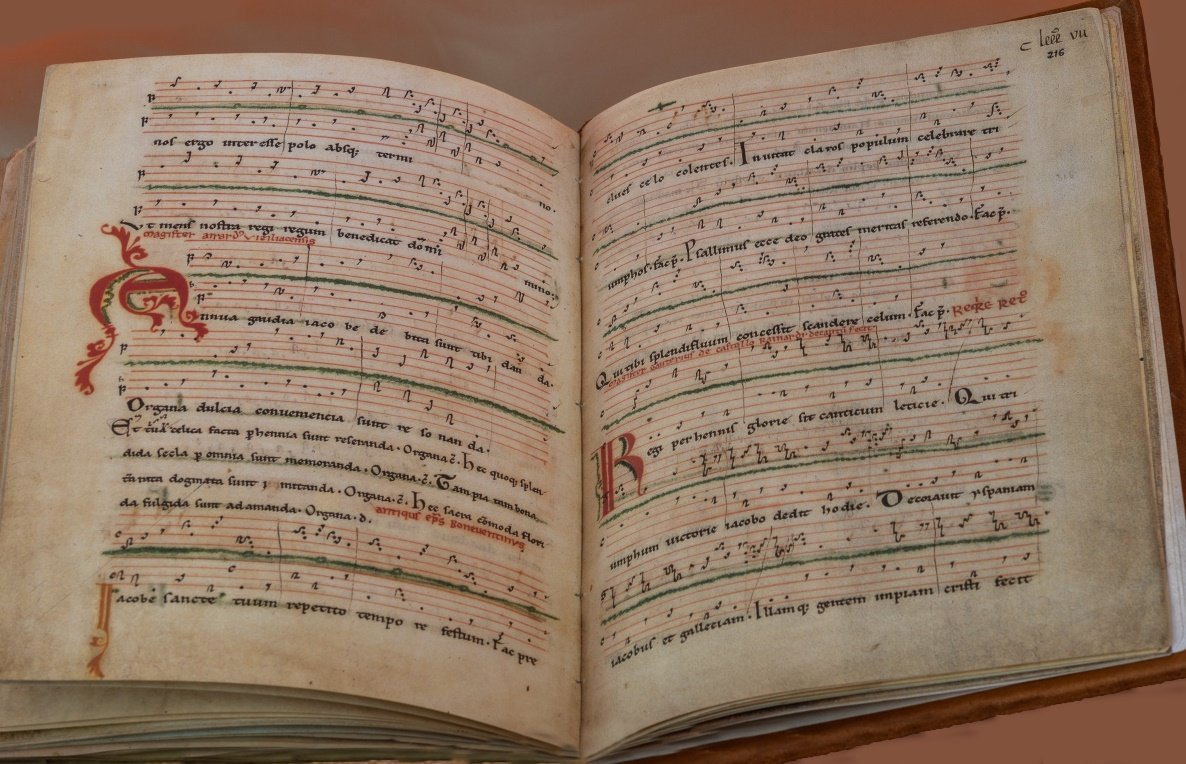 nos ergo interesse polo absq; termi
no.
Et mens nostra regi regum benedicat domi
magister airardus viziliacensis
mino.
Annua gaudia iaco be de bita sunt tibi dan da.
Organa dulcia conueniencia sunt re so nan da.
facta phennia sunt reseranda. Organa. Hec quoq; splen
dida secla p omnia sunt memoranda. Organa. Tam pia tam bona,
dogmata sunt imitanda. Organa. Hec sacra comoda flori
da fulgida sunt adamanda. Organa. d.
antiquus eps boneuentinus
Iacobe sancte tuum repetito tempo re festum. Fac pre
c leee vii
216
clues celo colentes. Inuitat claros populum celebrare tri
umphos. fac p. Psallimus ecce deo grates meritas referendo. Fac p.
Qui tibi splendifluum concessit scandere celum. Fac p.
magister gauterius de castello rainardi decantum fecit
Regi perhennis glorie sit canticum leticie. Qui tri
umphum uictorie iacobo dedit hodie. Decorauit yspaniam
iacobus et galleciam. Illamq; gentem impiam cristi fecit